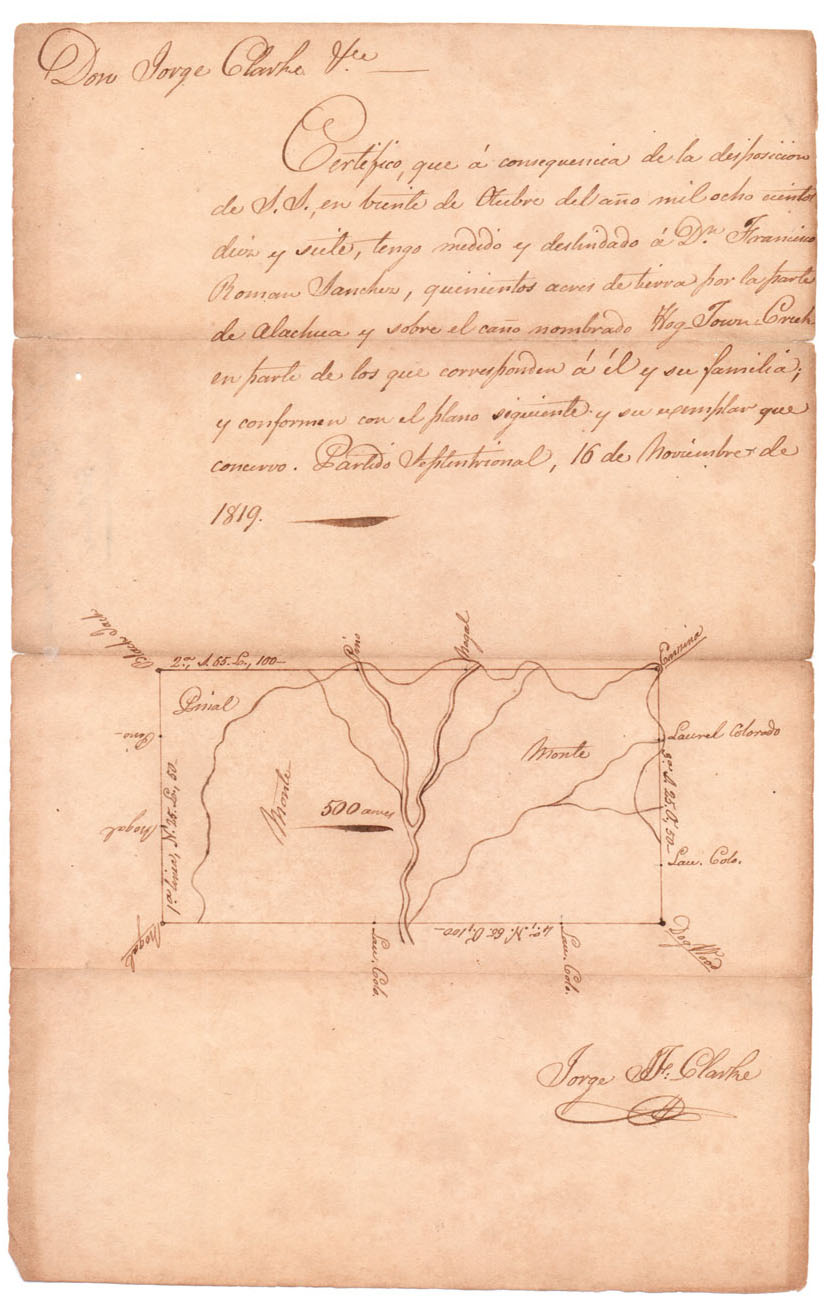 Don Jorge Clarke &ce
Certifico, que á consequencia de la desposicion
de S. S., en biente de Otubre del año mil ocho cientos
diez y siete, tengo medido y deslindado á Dn. Francisco
Roman Sanchez, quinientos acres de tierra por la parte
de Alachua y sobre el caño nombrado Hog-Town-Creek
en parte de los que corresponden á él y su familia;
y conformen con el plano siguiente y su exemplar que
concervo. Partido Septentrional, 16 de Noviembre de
1819.
Black Jack
2a. S. 65. E., 100
Pino
Nogal
Pinal
Pino
Laurel Colorado
Monte
Monte
3a. S. 25. O., 50
500 acres
Nogal
1a. linea, N. 25. E., 50
Lau. Colo.
Nogal
4a., N. 65. O., 100
Dog Wood
Lau. Colo.
Lau. Colo.
Jorge J. F. Clarke